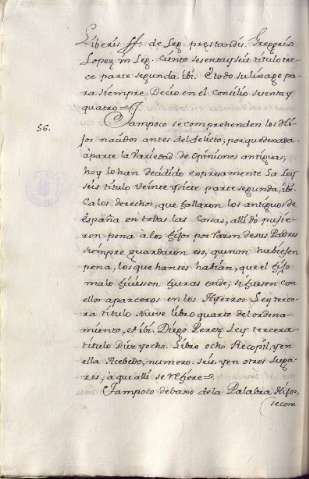 Liberis ff. de Leg. prestandis. Gregorio
Lopez in Leg. ciento sesenta y seis titulo tre-
ce parte segunda, ibi. Et odo su linage pa-
ra siempre. Decio en el Consilio
quatro.
56.
Tampoco se comprehenden los Hi-
jos nacidos antes del delicto, porque dexada
aparte la Variedad de Opiniones antiguas,
hoy lo han decidido expresamente La Ley
seis titulo veinte y siete parte segunda, ibi.
Ca los derechos, que fallaron los antiguos de
España en todas las Cosas, allí do pusie-
ron pena a los Hijos por razon de sus Padres
siempre guardaron eso, que non hubiesen
pena, los que hantes habian, que el Hijo
malo hiciesen fueras ende, si fuesen con
ellos aparceros en los Hierros Ley terce-
ra titulo nueve libro quarto del ordena-
miento, et ibi Diego Perez, Ley tercera
titulo diez y ocho Libro ocho Recopil, y en
ella Acebedo, numero seis y en otros Luga-
res, a que alli se refiere.
Tampoco debaxo de la Palabra Hijos,
secom